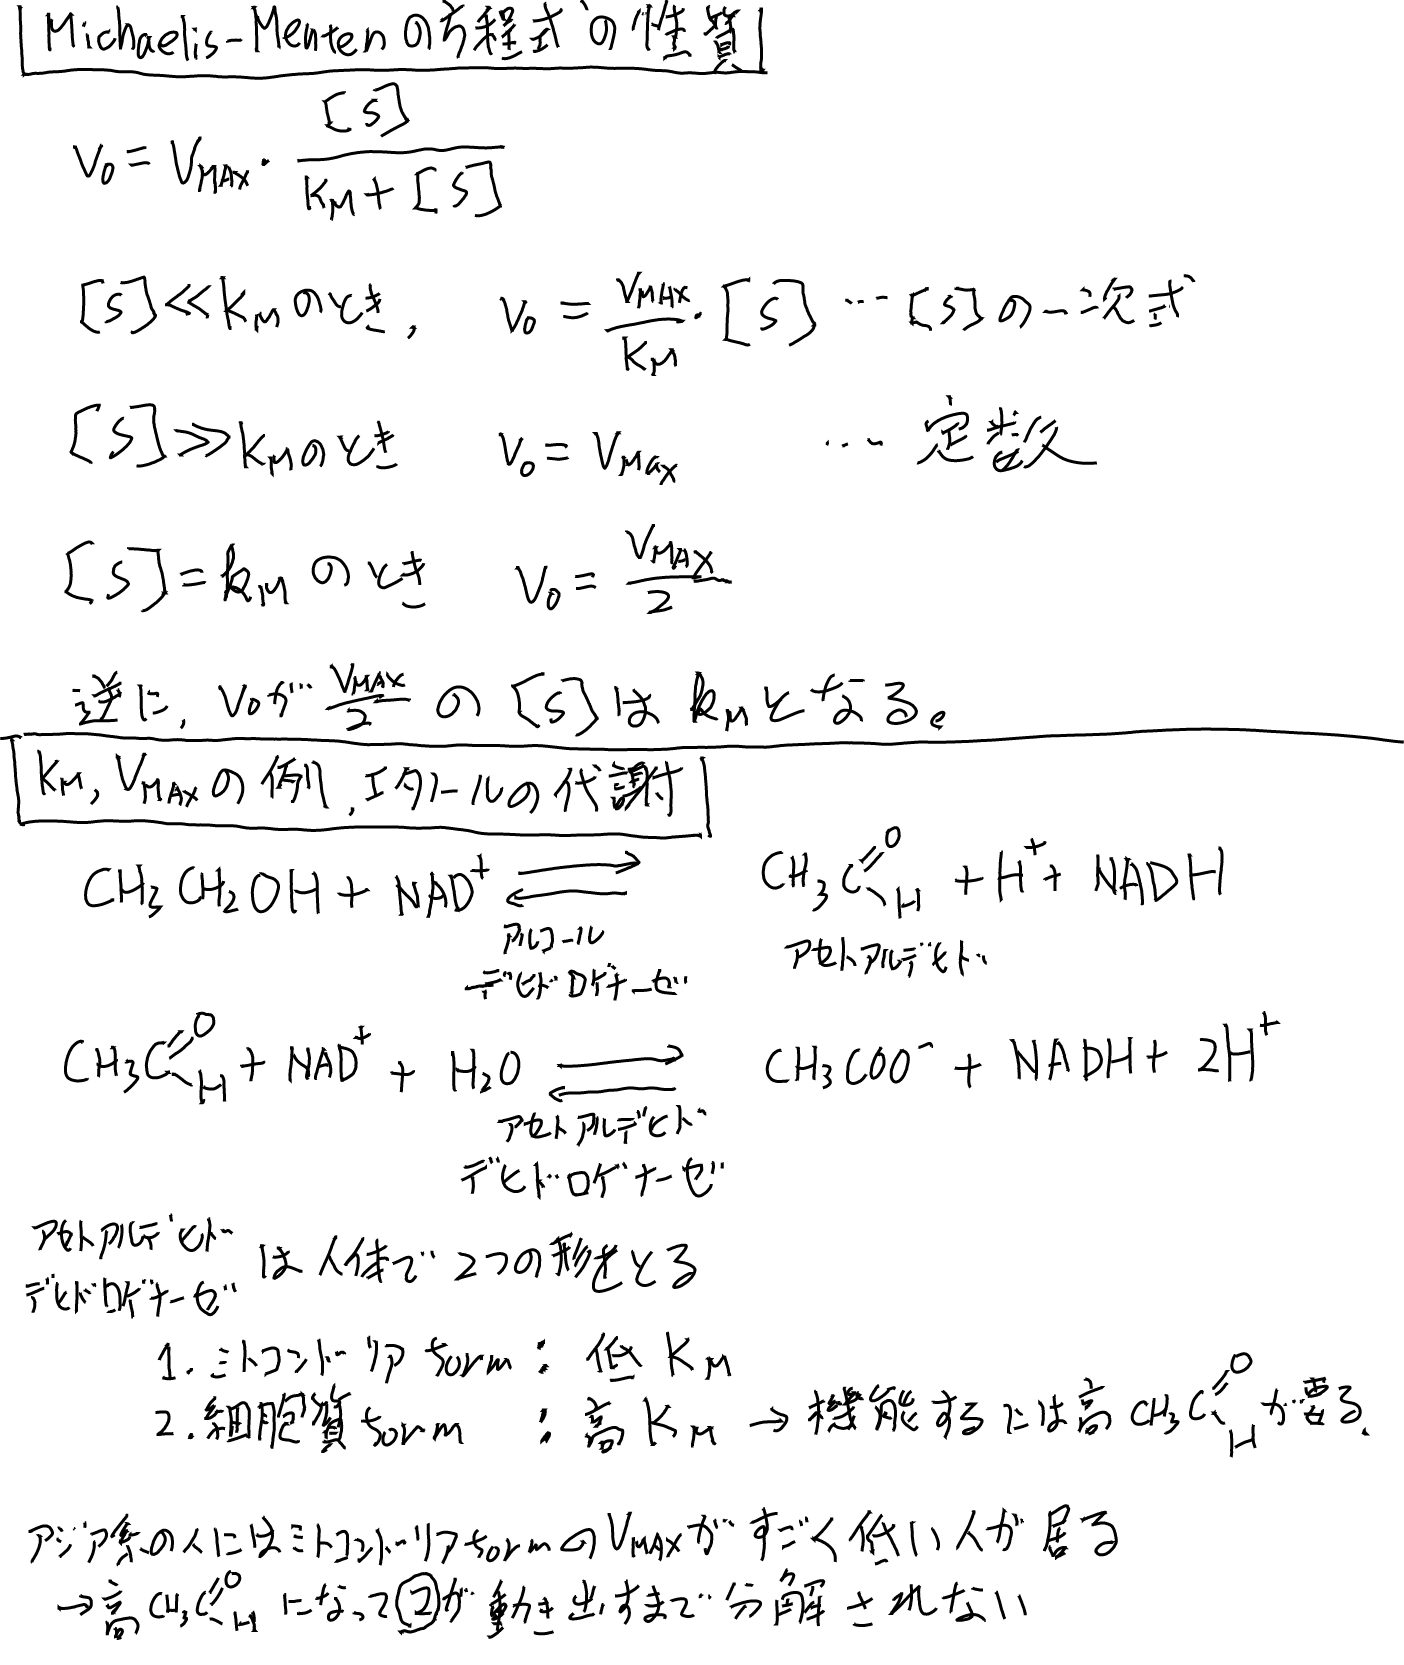 Michaelis-Mentenの方程式の性質
V₀ = V_MAX · [S] / (K_M + [S])
[S] ≪ K_M のとき, V₀ = V_MAX / K_M · [S] … [S]の一次式
[S] ≫ K_M のとき V₀ = V_Max … 定数
[S] = k_M のとき V₀ = V_MAX / 2
逆に, V₀が V_MAX / 2 の [S]は k_M となる。
K_M, V_MAX の例, エタノールの代謝
CH₃CH₂OH + NAD⁺ ⇄ CH₃C(=O)H + H⁺ + NADH
アルコール アセトアルデヒド
デヒドロゲナーゼ
CH₃C(=O)H + NAD⁺ + H₂O ⇄ CH₃COO⁻ + NADH + 2H⁺
アセトアルデヒド
デヒドロゲナーゼ
アセトアルデヒド
デヒドロゲナーゼ は人体で2つの形をとる
1. ミトコンドリア form : 低 K_M
2. 細胞質 form : 高 K_M → 機能するには高 CH₃C(=O)H が要る.
アジア系の人にはミトコンドリアformのV_MAXがすごく低い人が居る
→高 CH₃C(=O)H になって②が動き出すまで分解されない